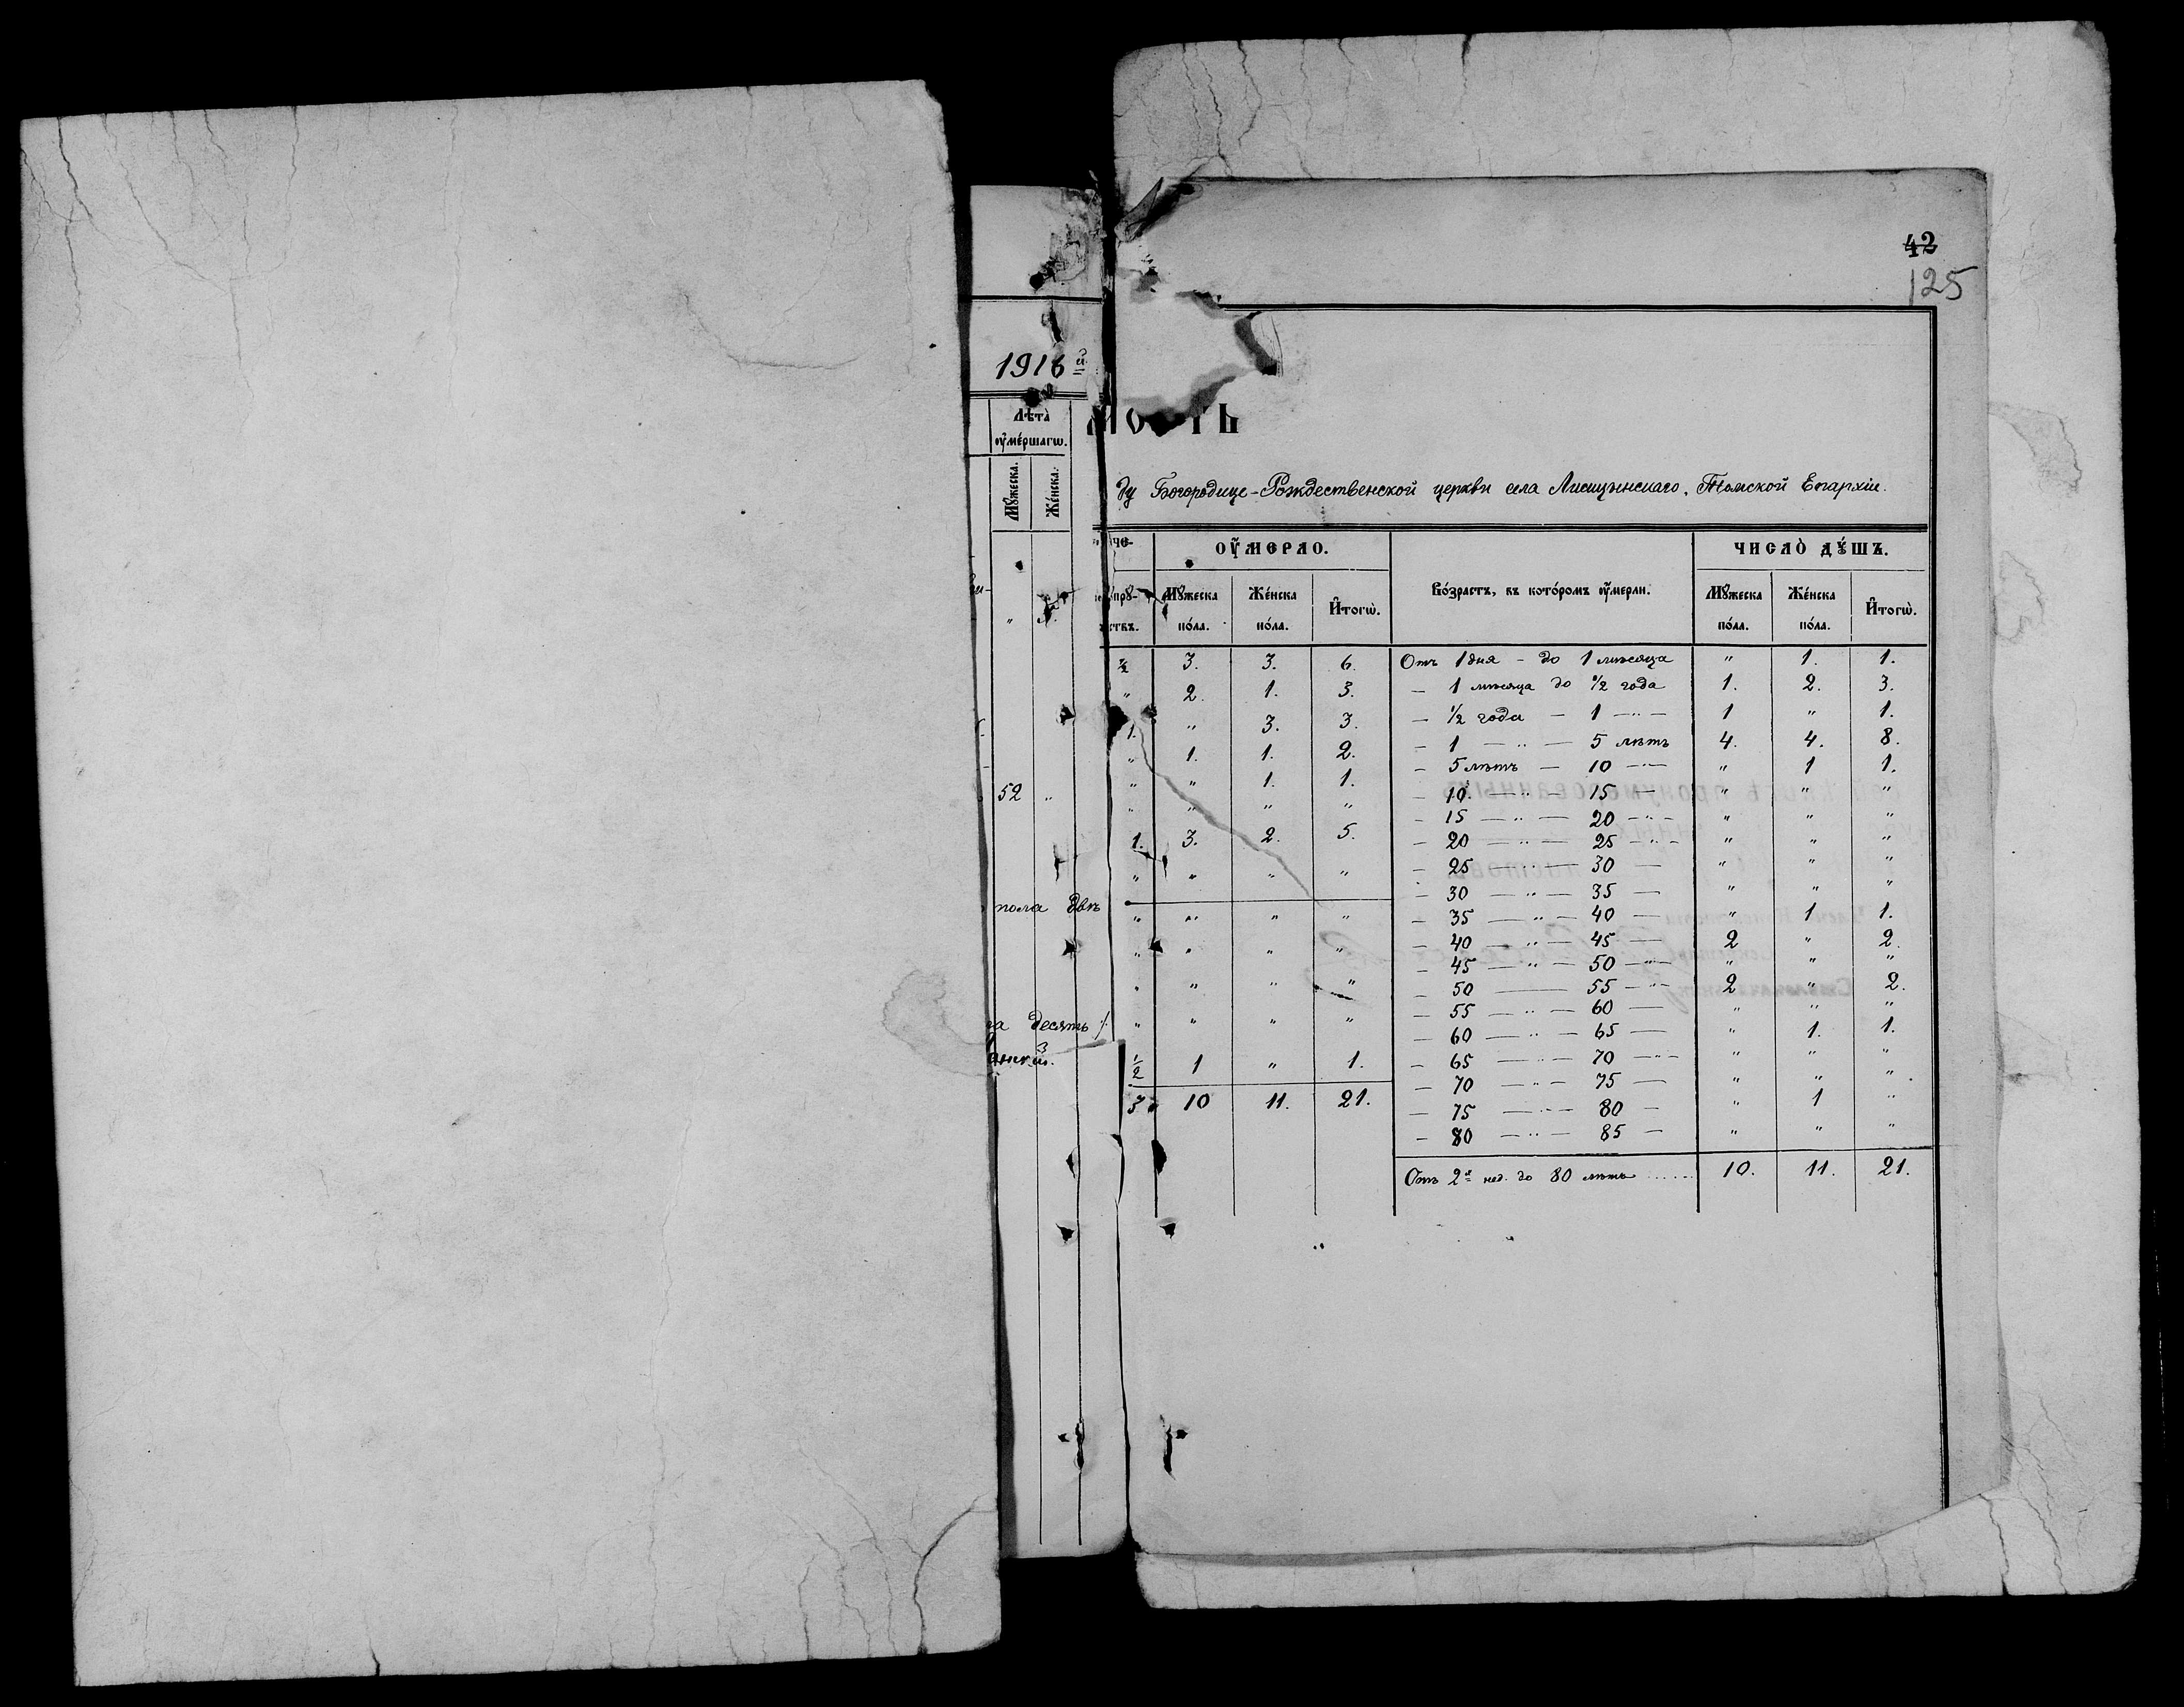 42
125
1916й
Лѣта̀
оу҆ме́ршагѡ.
Мꙋжеска.
Же́нска.
"
52 "
пола двѣ
десять
ду Богородице-Рождественской церкви села Лисицынскаго, Томской Епархіи.
че- ОУ҆МЕРЛО. Во́зрастъ, въ кото́ромъ оу҆мерли. ЧИСЛО̀ ДꙊ́ШЪ.
Мꙋжеска по́ла. Же́нска по́ла. И҆тогѡ̀. Мꙋжеска по́ла. Же́нска по́ла. И҆тогѡ̀.
½ 3. 3. 6.
" 2. 1. 3.
1. " 3. 3.
" 1. 1. 2.
" " 1. 1.
" " " "
1. 3. 2. 5.
" " " "
" " " "
" " " "
" " " "
" " " "
½ 1 " 1.
3 10 11. 21.
Отъ 1 дня - до 1 мѣсяца " 1. 1.
— 1 мѣсяца до ½ года 1. 2. 3.
— ½ года — 1 — " — 1 " 1.
— 1 — " — 5 лѣтъ 4. 4. 8.
— 5 лѣтъ — 10 — " — " 1 1.
— 10 — " — 15 — " " "
— 15 — " — 20 — " — " " "
— 20 — " — 25 — " — " " "
— 25 — " — 30 — " " "
— 30 — " — 35 — " " "
— 35 — " — 40 — " 1 1.
— 40 — " — 45 — 2 " 2.
— 45 — " — 50 — " — " " "
— 50 — 55 — " — 2 " 2.
— 55 — " — 60 — " " "
— 60 — " — 65 — " 1. 1.
— 65 — " — 70 — " — " " "
— 70 — " — 75 — " " "
— 75 — " — 80 — " 1 "
— 80 — " — 85 — " " "
Отъ 2х нед. до 80 лѣтъ ...... 10. 11. 21.